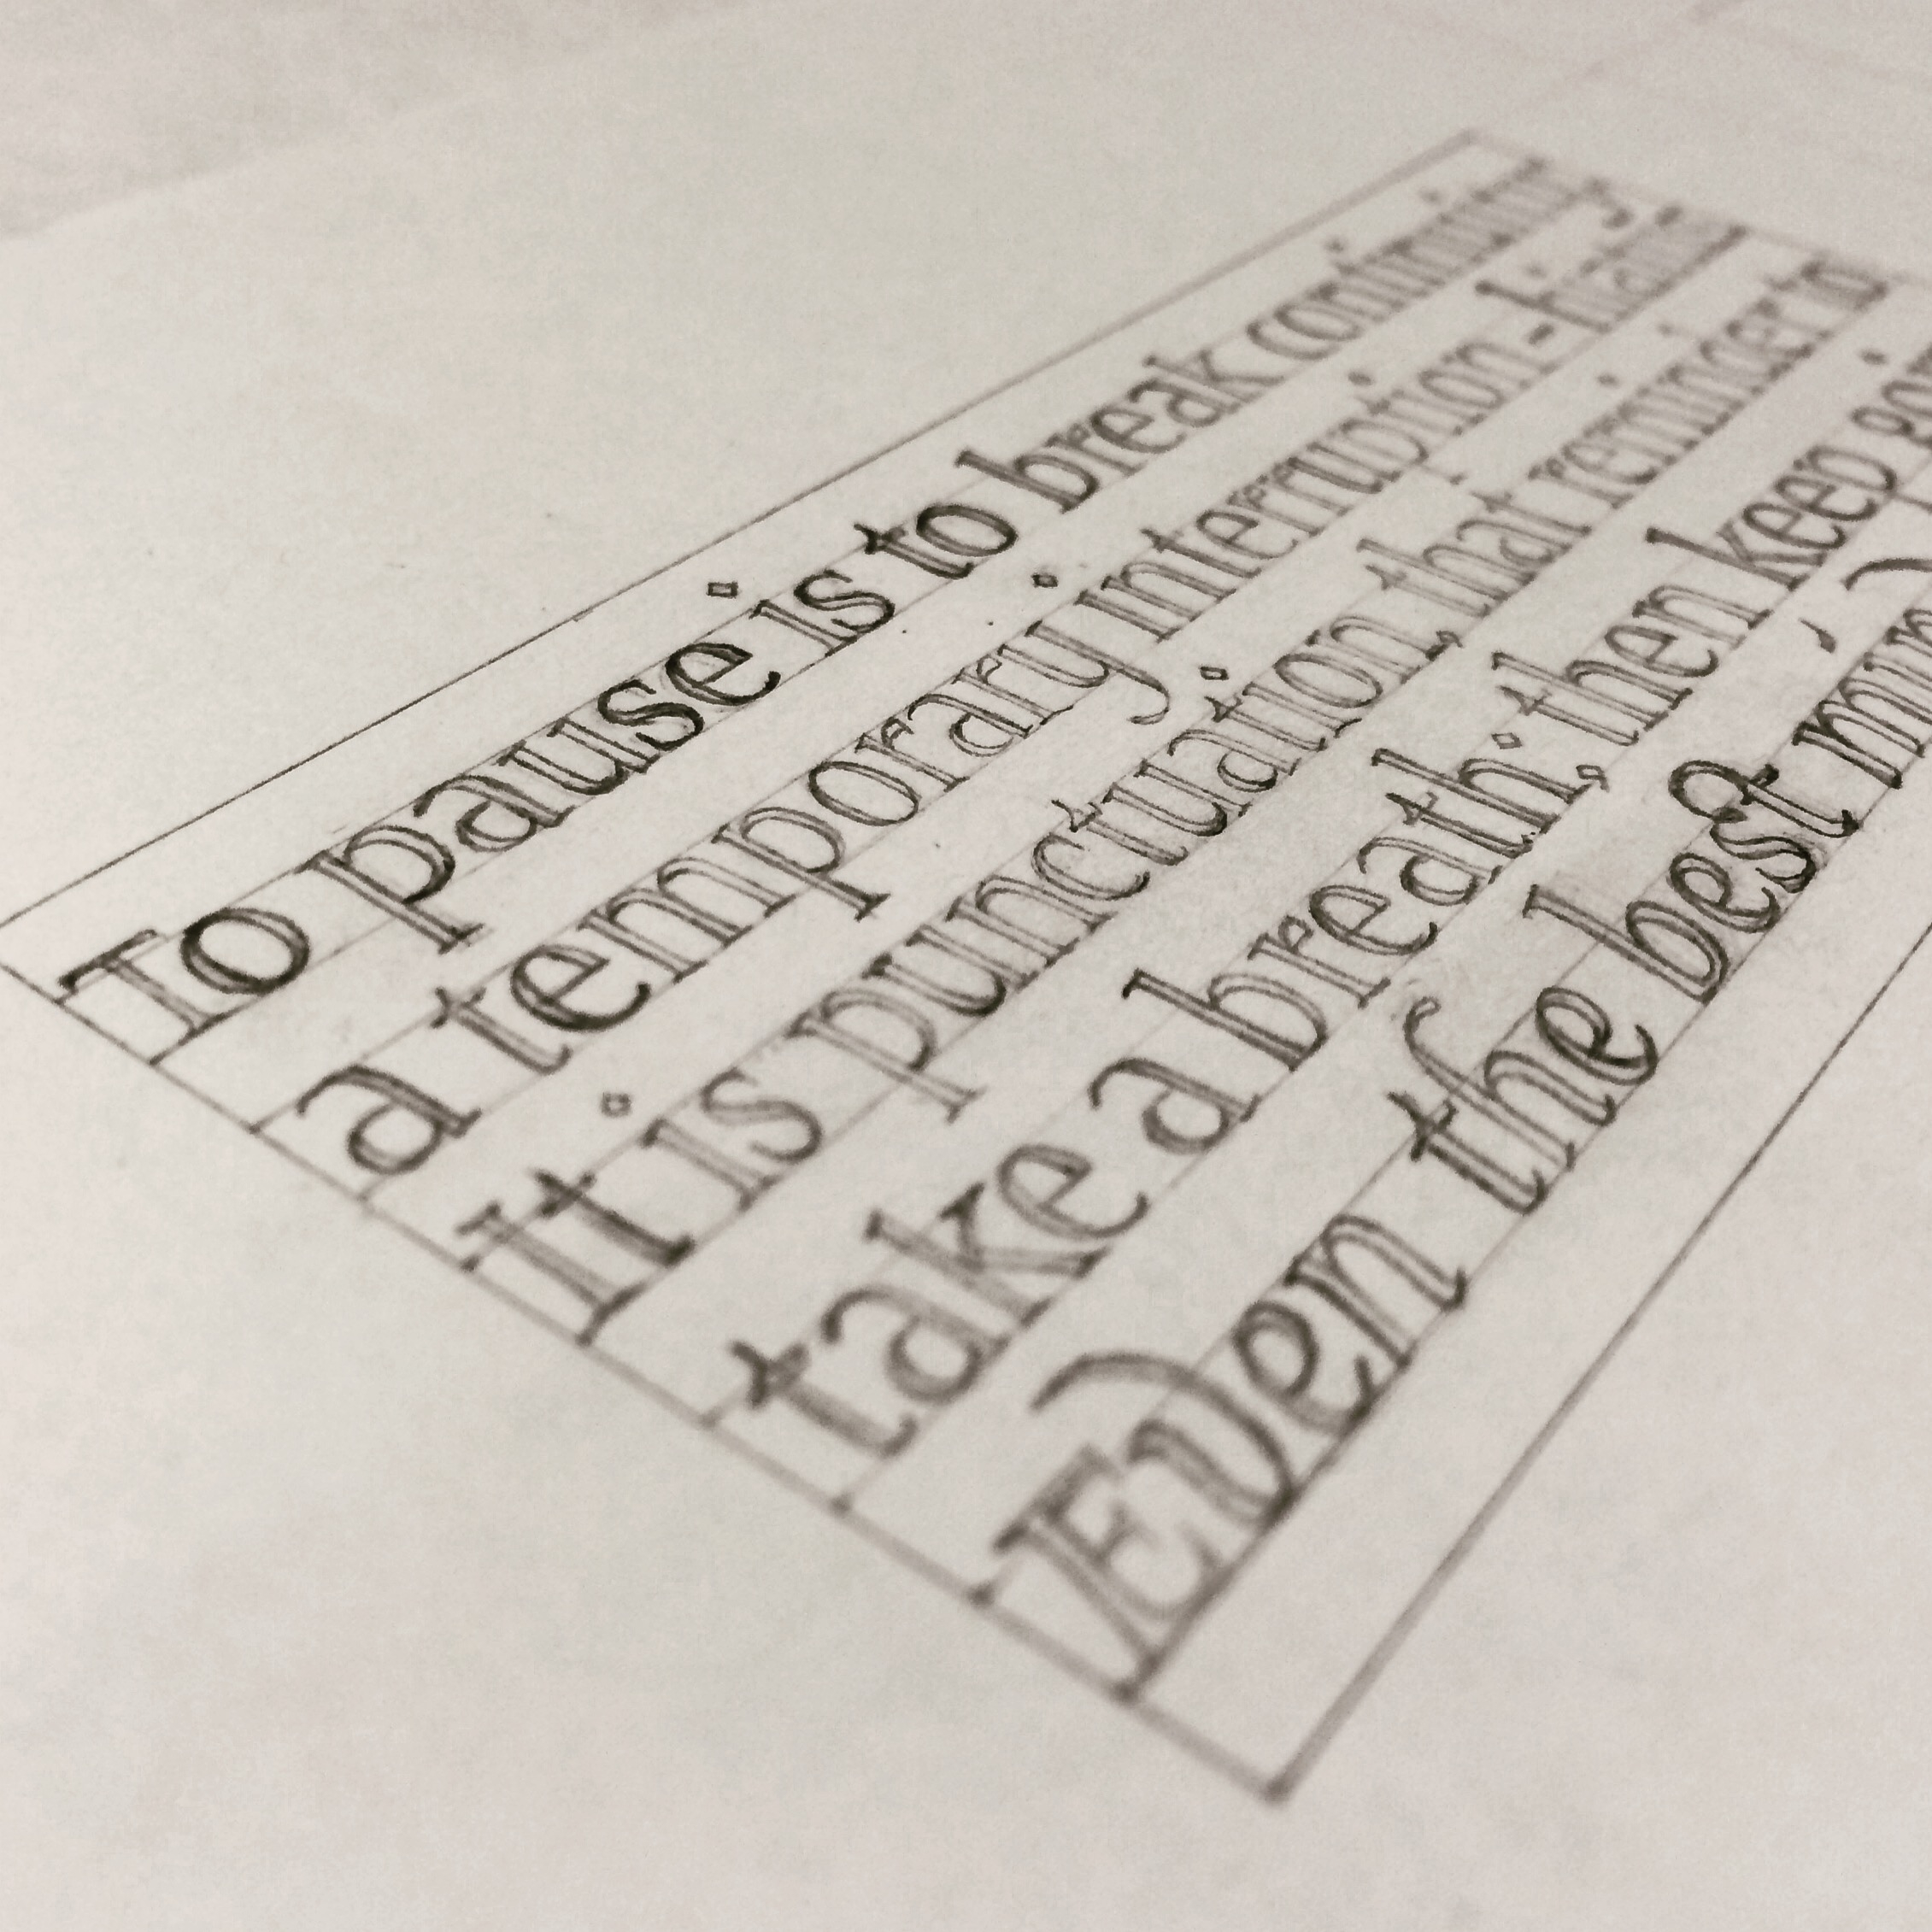 To pause is to break continuity
a temporary interruption - hiatus
It is punctuation, that reminder to
take a breath; then keep
Even the best